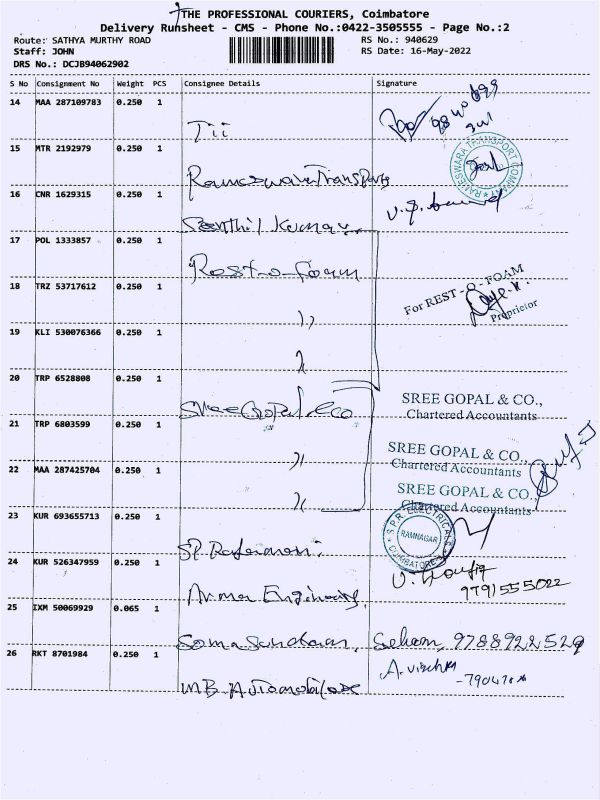 THE PROFESSIONAL COURIERS, Coimbatore
Delivery Runsheet - CMS - Phone No.:0422-3505555 - Page No.:2
Route: SATHYA MURTHY ROAD
RS No.: 940629
Staff: JOHN
RS Date: 16-May-2022
DRS No.: DCJB94062902
S No Consignment No Weight PCS Consignee Details Signature
14 MAA 287109783 0.250 1
Tii
15 MTR 2192979 0.250 1
Rameswara Transports
RAMESWARA TRANSPORT COMPANY
16 CNR 1629315 0.250 1
Senthil Kumar
17 POL 1333857 0.250 1
Rest-o-Foam
18 TRZ 53717612 0.250 1
For REST-O-FOAM
Proprietor
19 KLI 530076366 0.250 1
20 TRP 6528808 0.250 1
Sree Gopal & co
SREE GOPAL & CO.,
Chartered Accountants
21 TRP 6803599 0.250 1
SREE GOPAL & CO.,
Chartered Accountants
22 MAA 287425704 0.250 1
SREE GOPAL & CO.,
Chartered Accountants
23 KUR 693655713 0.250 1
S.P.R. ELECTRICALS
RAMNAGAR
COIMBATORE-9
24 KUR 526347959 0.250 1
9791555022
25 IXM 50069929 0.065 1
Somasundaram, 9788922529
26 RKT 8701984 0.250 1